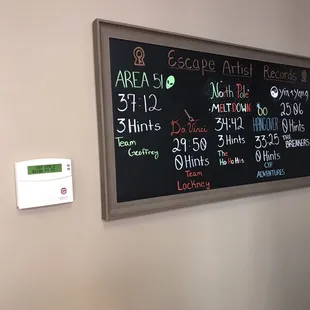 Escape Artist Records
AREA 51
37:12
3 Hints
Team
Geoffrey
Da Vinci
29:50
0 Hints
Team
Lockney
North Pole
MELTDOWN
34:42
3 Hints
The
Ho Ho Hos
HANGOVER
33:25
0 Hints
ADVENTURES
yin & yang
25:06
0 Hints
THE
BREAKERS